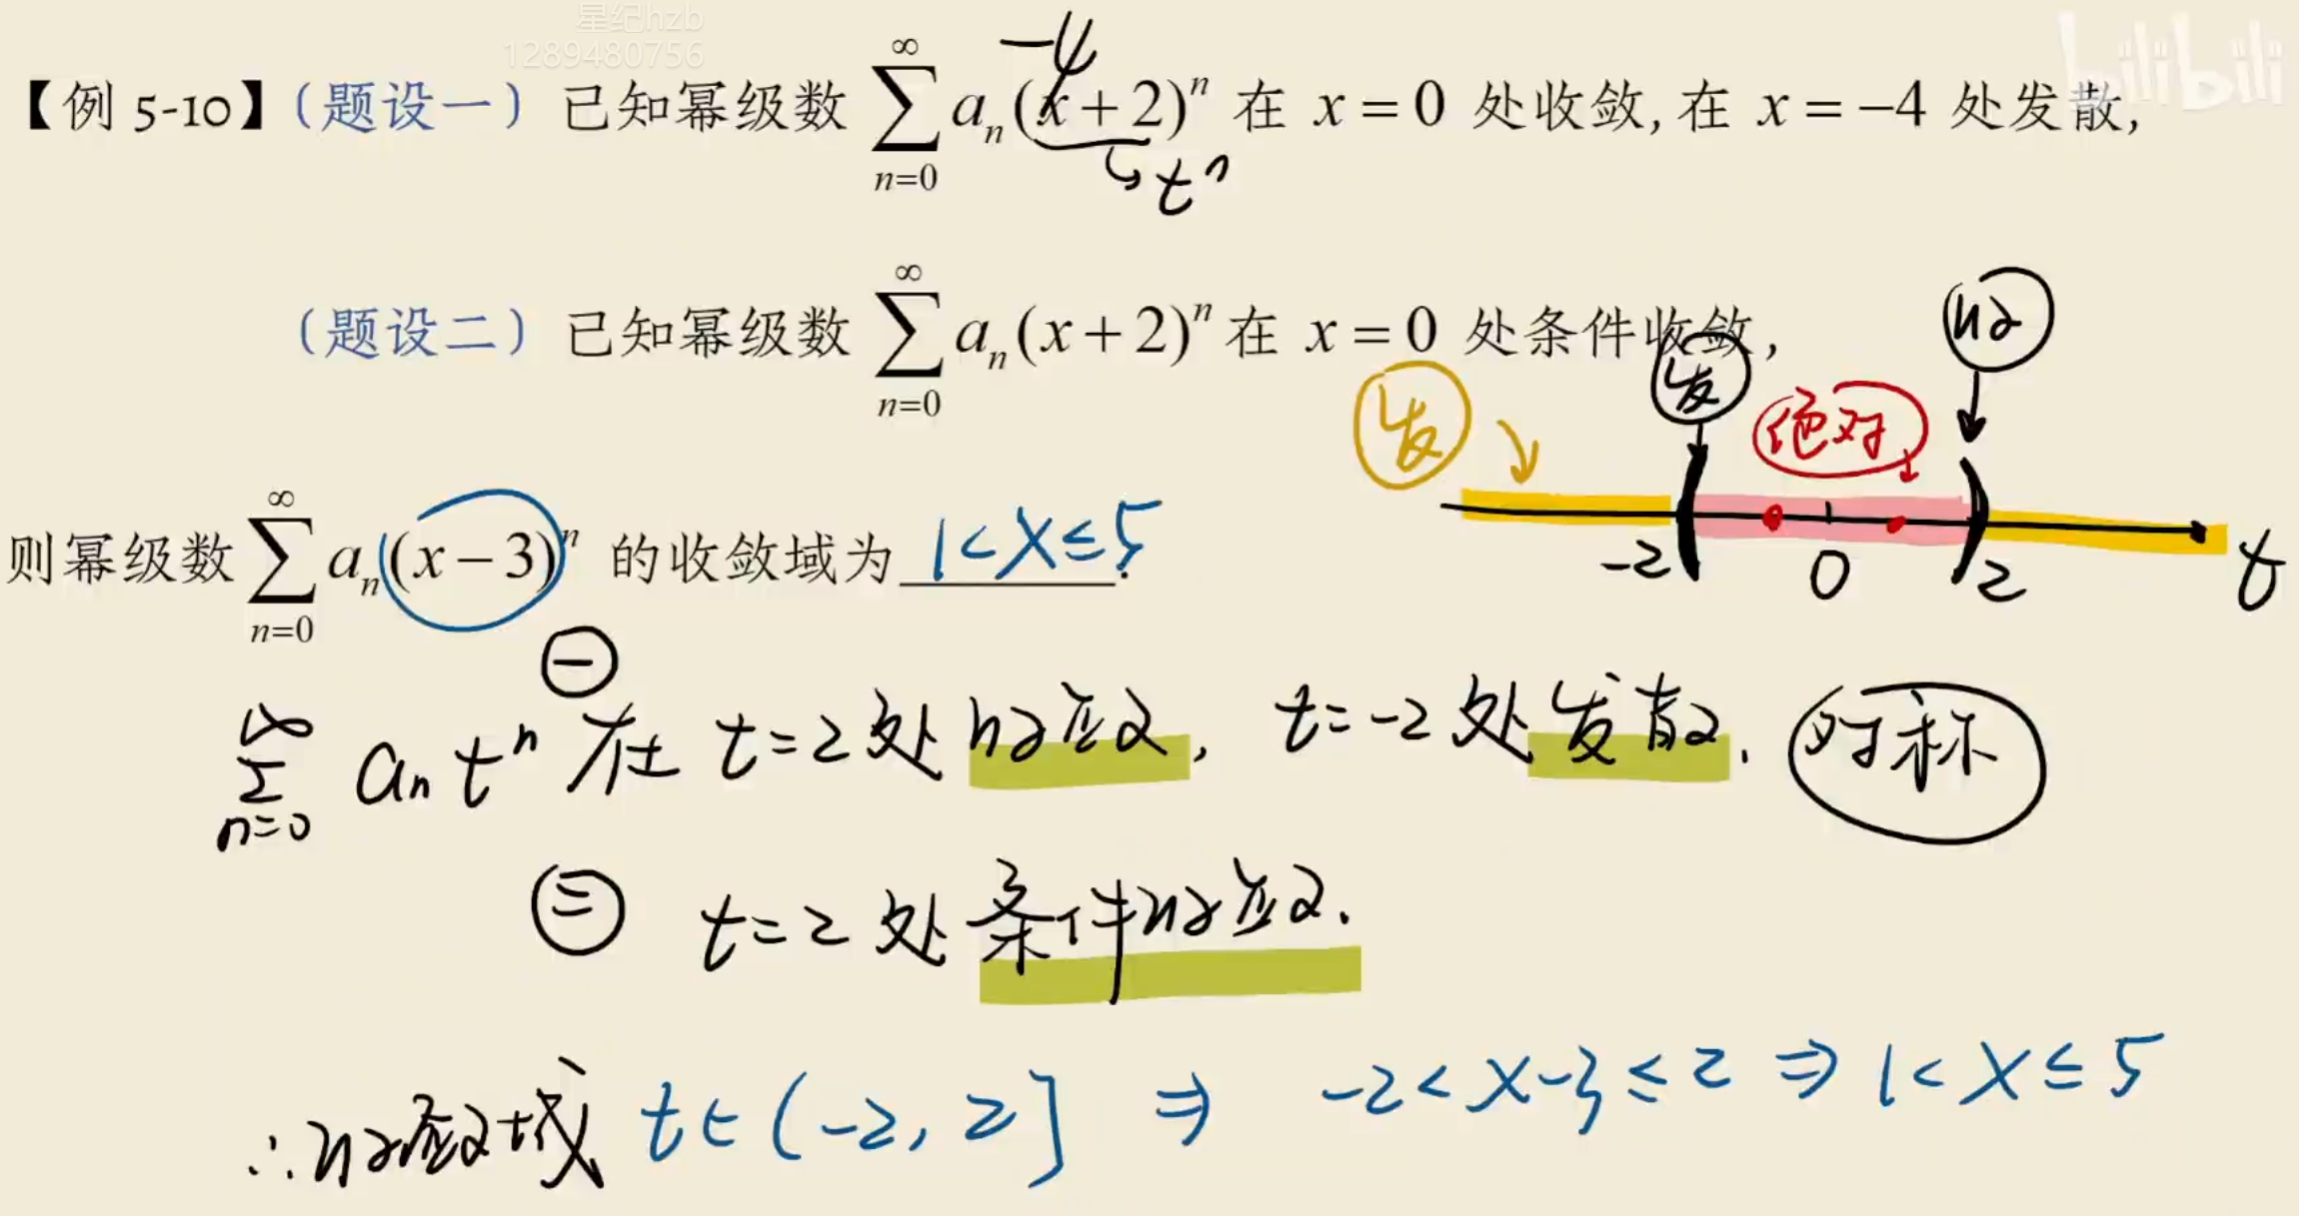 星纪hzb
1289480756
bilibili
-4
【例 5-10】（题设一）已知幂级数 $\sum_{n=0}^{\infty} a_n (x+2)^n$ 在 x = 0 处收敛, 在 x = −4 处发散,
t^n
（题设二）已知幂级数 $\sum_{n=0}^{\infty} a_n (x+2)^n$ 在 x = 0 处条件收敛,
收
发 发 绝对
-2 0 2 t
则幂级数 $\sum_{n=0}^{\infty} a_n (x-3)^n$ 的收敛域为 1<x≤5.
㊀
$\sum_{n=0}^{\infty} a_n t^n$ 在 t=2 处收敛, t=-2 处发散. 对称
㊁ t=2 处条件收敛.
∴收敛域 t∈(-2, 2] ⇒ -2<x-3≤2 ⇒ 1<x≤5